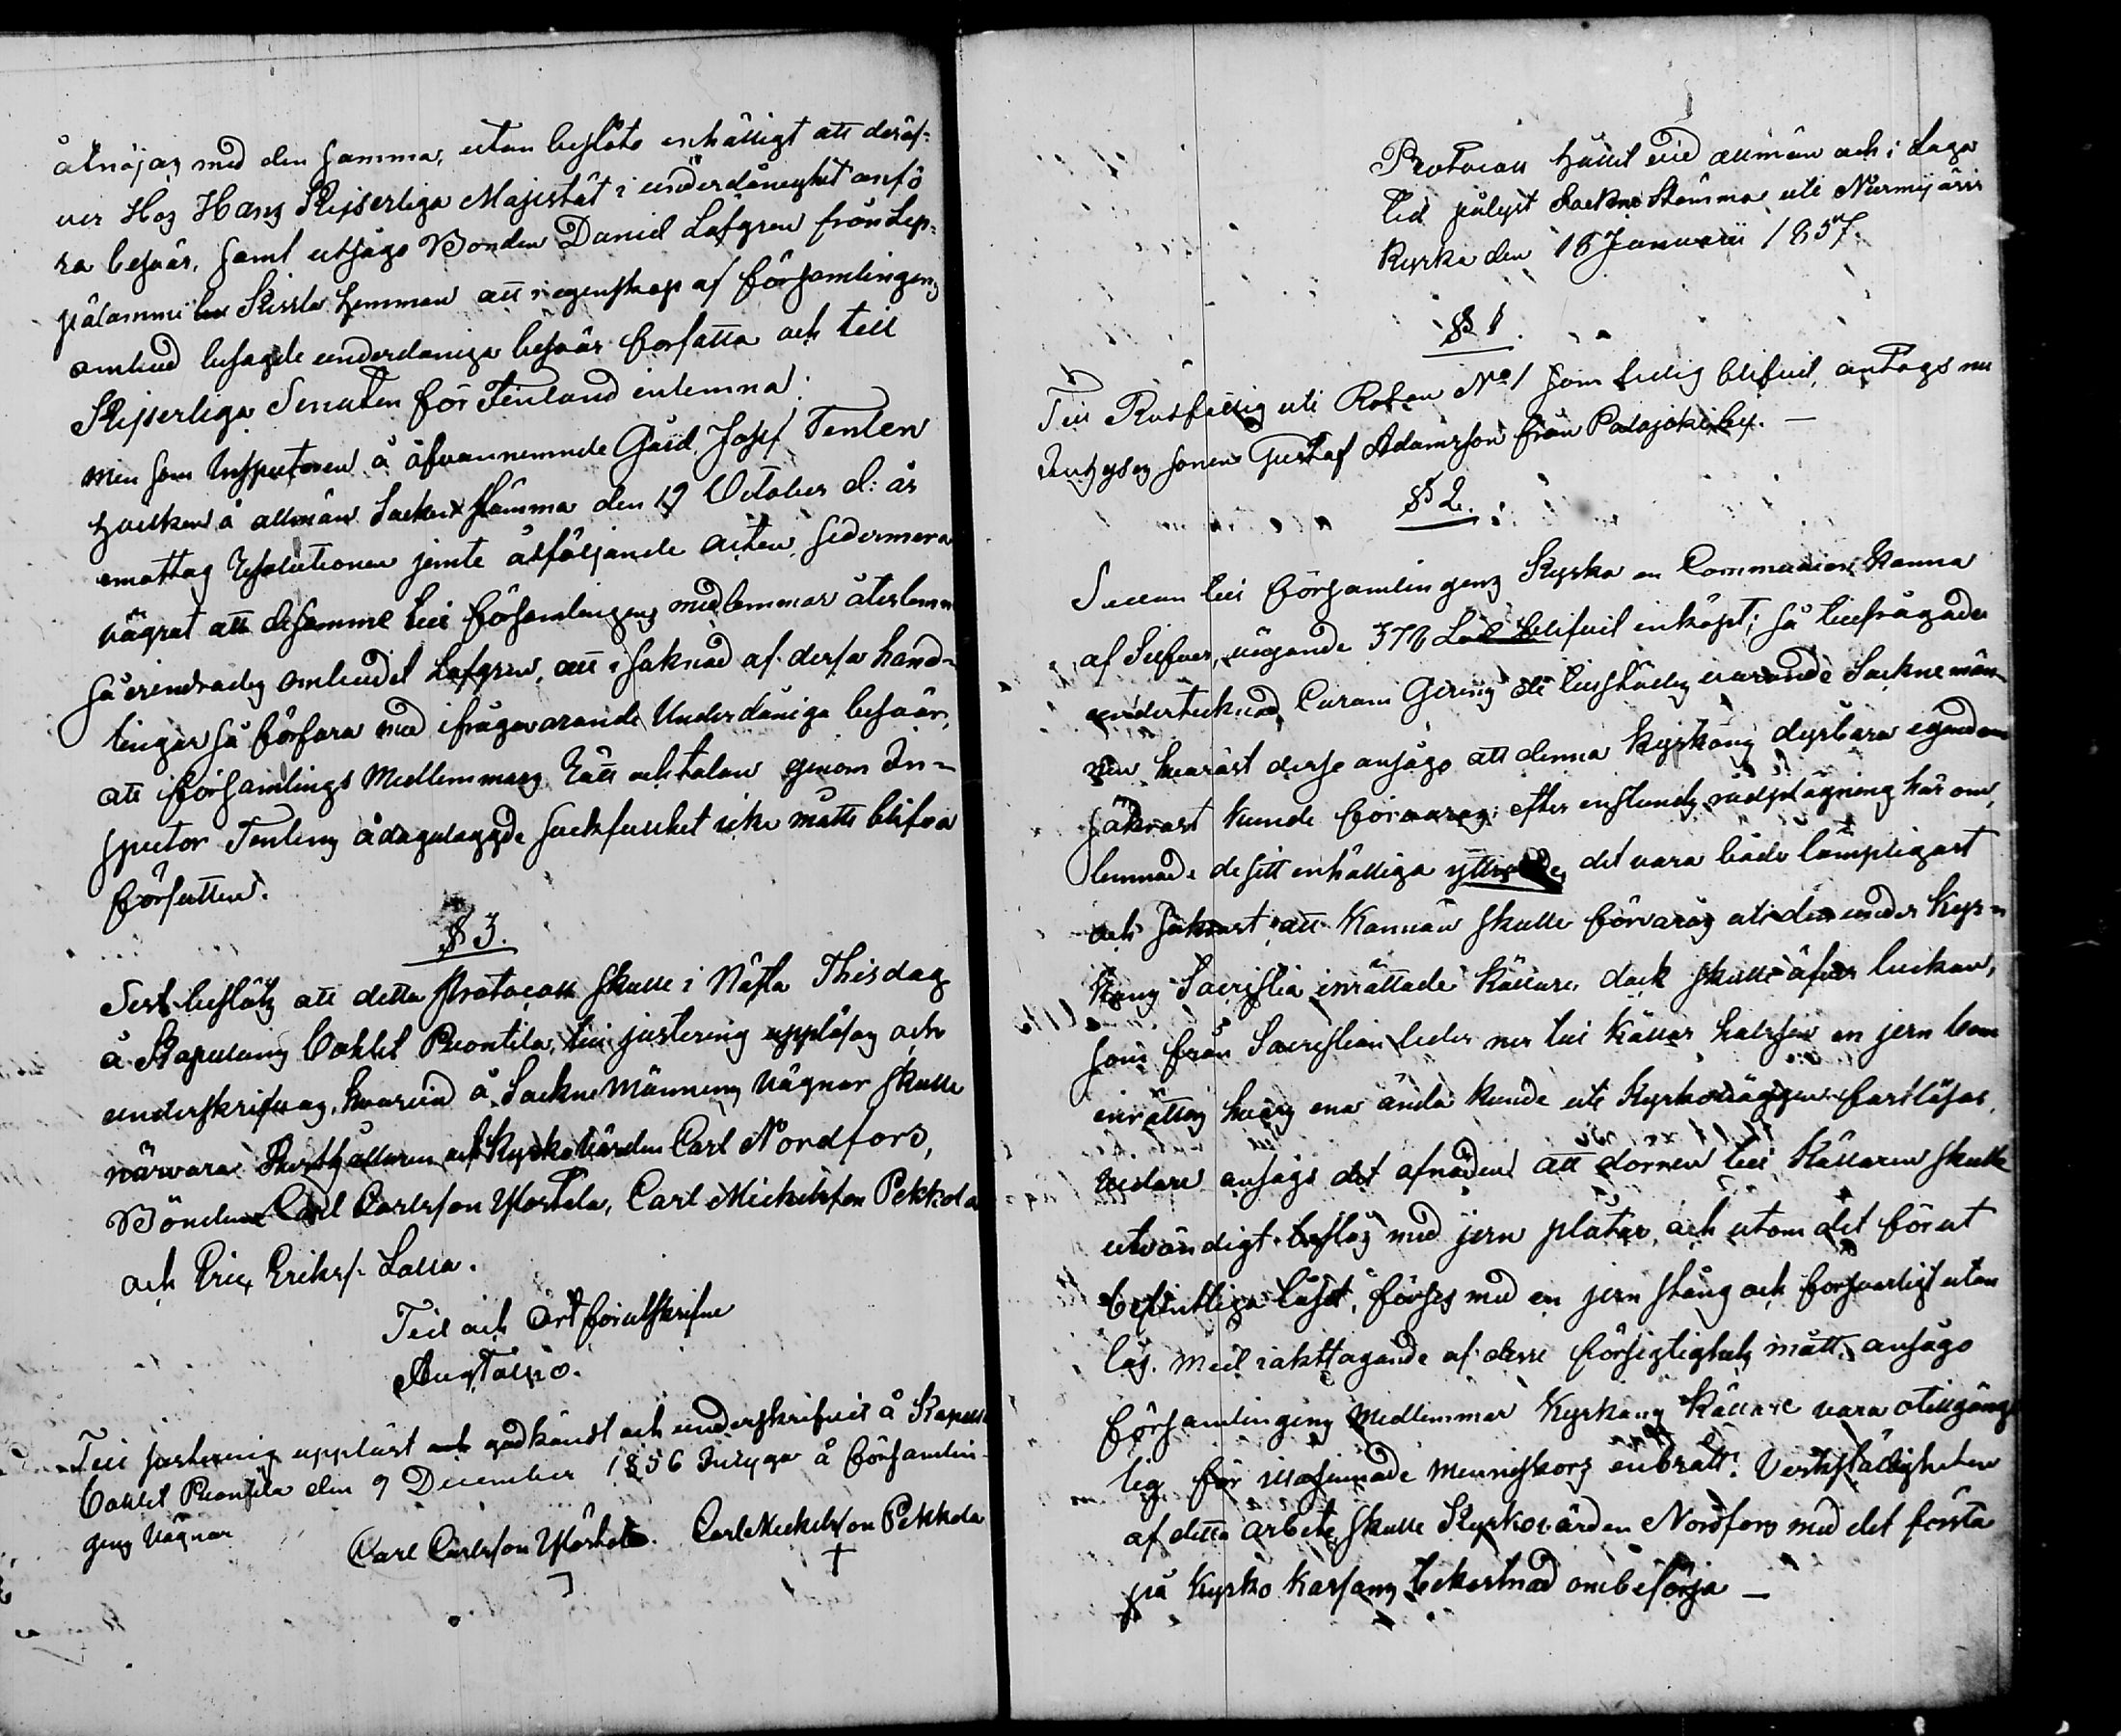 åtnöjas med den samma, utan beslöto enhälligt att deröf-
ver Hos Hans Kejserliga Majestät i underdånighet anfö
ra besvär, samt utsågo Bonden Daniel Löfgren från Lep-
pälammi Skissla hemman att i egenskap af församlingens
ombud besagde underdåniga besvär författa och till
Kejserliga Senaten för Finland inlemna:
Men som Inspectoren å ofvannemnde Gård, Josef Tenlen
hvilken å allmän Sockne stämma den 19 October d: år
emottag Resolutionen jemte åtföljande acten, sedermera
vägrat att desamme till församlingens medlemmar återlemn
så erindrades ombudet Löfgren, att i saknad af dessa hand-
lingar så förfara med ifrågavarande Underdåniga besvär,
att församlings Medlemmars Rätt och talan genom In-
spector Tenlens ådagalaggde sackfuskhet icke måtte blifva
författen.
§ 3.
Sist beslöts att detta Protocoll skulle i Nästa Thisdag
å Kapellans Bohlet Ruontila, till justering uppläsas och
underskrifvas, hvarvid å Sockne Männens vägnar skulle
närvara Kyrkovärden Carl Nordfors,
Bönderne Carl Carlsson Yliortela, Carl Mickelsson Pekkola
och Eric Eriks: Lassa.
Tid och Ort förutskrifne
Aug Tallio.
Till justering uppläst och godkändt och underskrifvit å Kapells
Bohlet Ruontila den 9 December 1856 Intyga å församlin-
gens vägnar
Carl Carlsson Yliortela. Carl Mickelsson Pekkola
Protocoll hållit vid allmän och i Laga
tid pålyst Sockne Stämma uti Nurmijärvi
Kyrka den 18 Januarii 1857.
§ 1.
Till Rotfattig uti Rotan No 1 som ledig blifvit, antogs nu
Inhyses sonen Gustaf Adamsson från Palojoki by. —
§ 2.
Sedan till församlingens Kyrka en Communions Kanna
af Silfver, vägande 378 Lod blifvit inköpt; så tillfrågade
undertecknad Curam Gerens de tillstädes varande Sockne män-
nen hvaräst desse ansågo att denna Kyrkans dyrbara egendom
säkrast kunde förvaras: efter en stunds rådplägning här om,
lemnade de sitt enhälliga yttrande, det vara både lämpligast
och säkrast att Kannan skulle förvaras uti den under Kyr-
kans Sacristia inrättade Källare, dock skulle öfver luckan,
som från Sacristian leder ner till Källar halsen en jern bom
inrättas hvars ena ända kunde uti Kyrkoväggen fastlåsas,
vidare ansågs det af nöden att dörren till Källaren skulle
utvändigt beslås med jern plåtar, och utom det förut
befintliga låset, förses med en jern stång och försvarligt utan
lås. Med iakttagande af desse försigtighets mått, ansågo
församlingens Medlemmar Kyrkans Källare vara otillgäng
lig för illasinnade menniskors inbrott. Verkställigheten
af detta arbete skulle Kyrkovärden Nordfors med det första
på Kyrko Kassans bekostnad ombesörja —